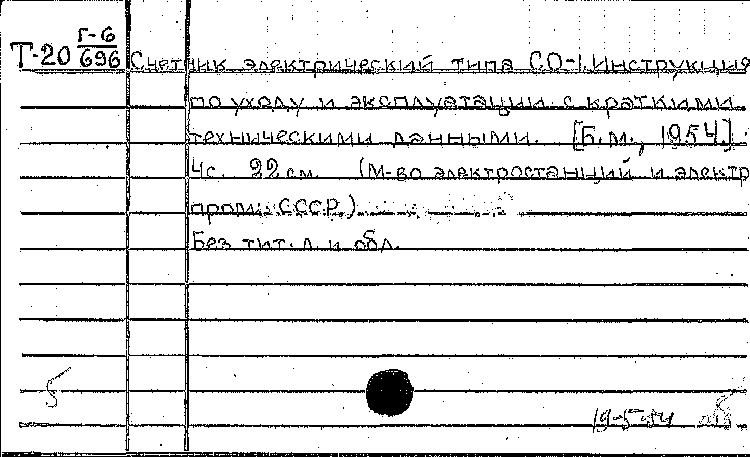 Г-6
Т-20 696 Счетчик электрический типа СО-1. Инструкция
по уходу и эксплуатации с краткими
техническими данными. [Б.м., 1954.]
4с. 22 см. (М-во электростанций и электр
пром. СССР.)
Без тит. л. и обл.
5
19-5-54